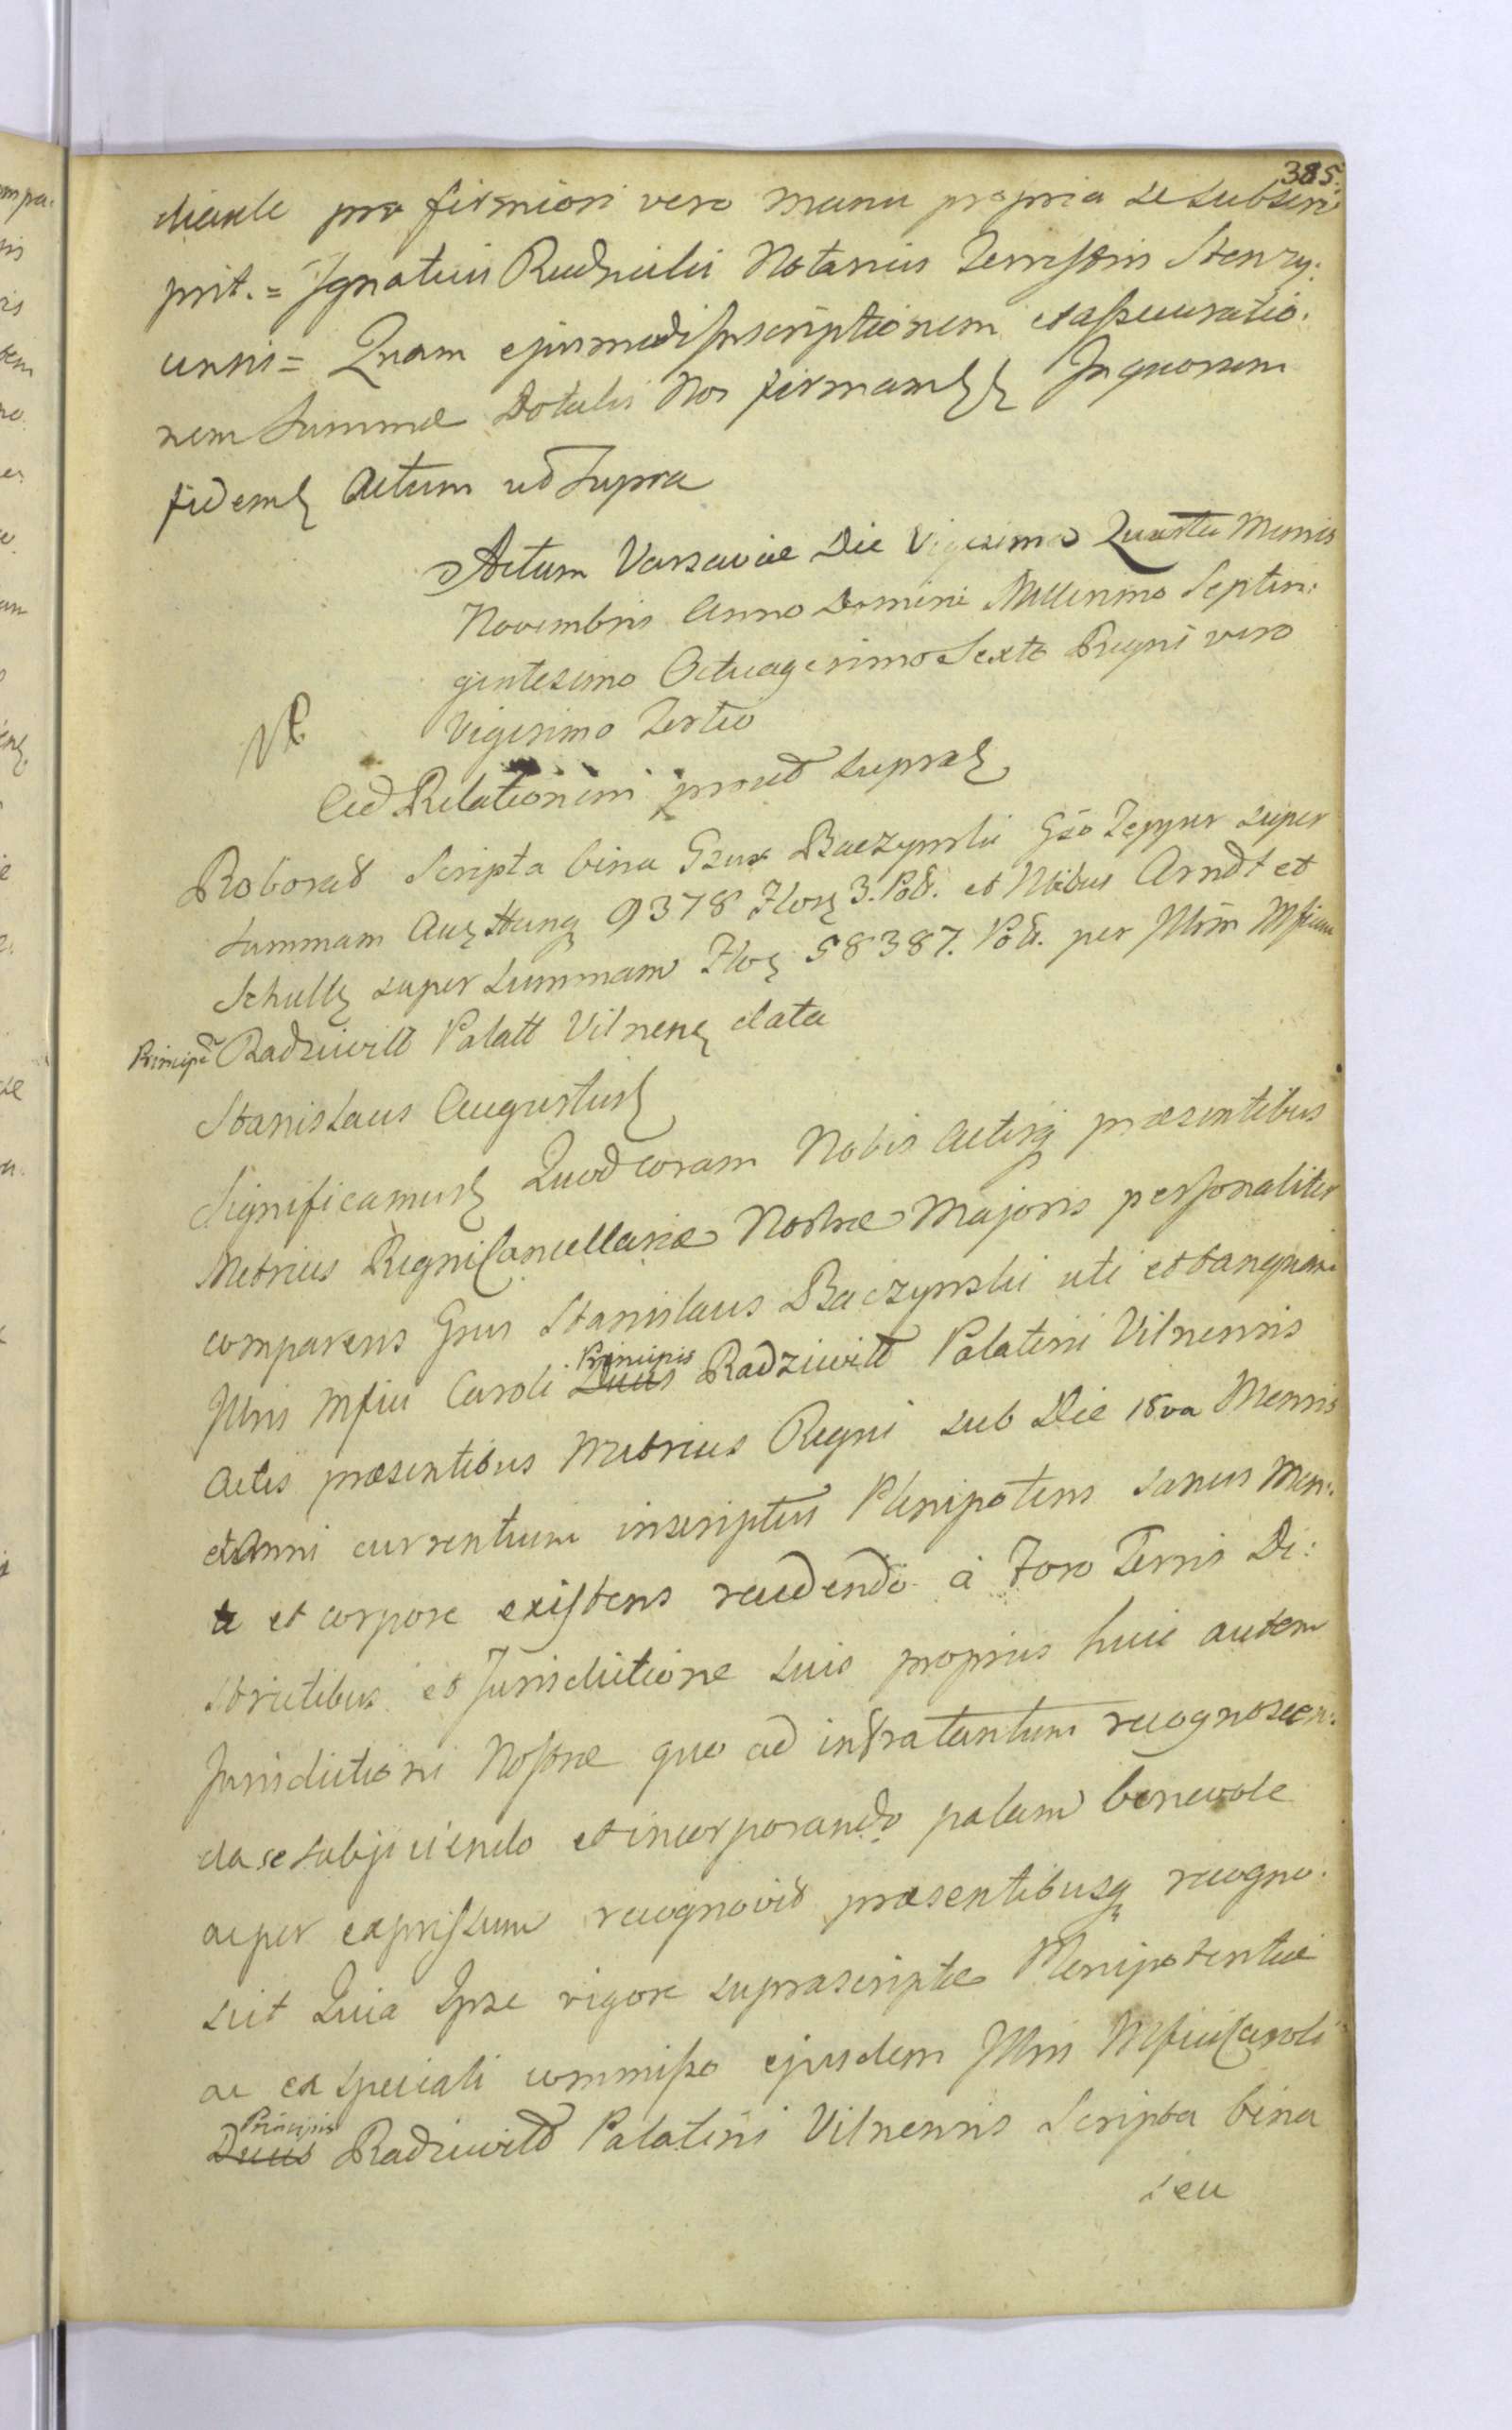 385.
diante pro firmiori vero manu propria se subscri
psit. = Ignatius Rudnicki Notarius Terrestris Stenzy:
censis = Quam ejusmodi Inscriptionem et assecuratio:
nem Summæ Dotalis Nos firmam In quorum
fidem Actum ut Supra
Actum Varsaviæ Die Vigesima Quarta Mensis
Novembris Anno Domini Millesimo Septin:
gentesimo Octuagesimo Sexto Regni vero
Vigesimo Tertio
Ad Relationem prout supra
Roborat Scripta bina Gsus Baczynski Gso Tepper super
Summam Hung 9378 Flor 3. Pol. et Nbibus Arndt et
Schultz super Summam Flor 58387. Pol. per Illrm Mficum
Principe Radziwiłł Palatt Vilnen data
Stanislaus Augustus
Significamus Quod coram Nobis Actisq præsentibus
Metrices Regni Cancellariæ Nostræ Majoris personaliter
comparens Gsus Stanislaus Baczynski uti et tanquam
Illris Mfici Caroli Ducis Principis Radziwiłł Palatini Vilnensis
Actis præsentibus Metrices Regni sub Die 18va Mensis
et Anni currentium inscriptus Plenipotens sanus men:
te et corpore existens recedendo à Foro Terris Di:
strictibus et Jurisdictione suis propriis huic autem
Jurisdictioni Nostræ quo ad infratantum recognoscen:
da se subjiciendo et incorporando palam benevole
ac per expressum recognovit præsentibusq recogno:
scit Quia Ipse vigore suprascriptæ Plenipotentiæ
ac ex speciali commisso ejusdem Illris Mfici Caroli
Ducis Principis Radziwiłł Palatini Vilnensis Scripta bina
seu